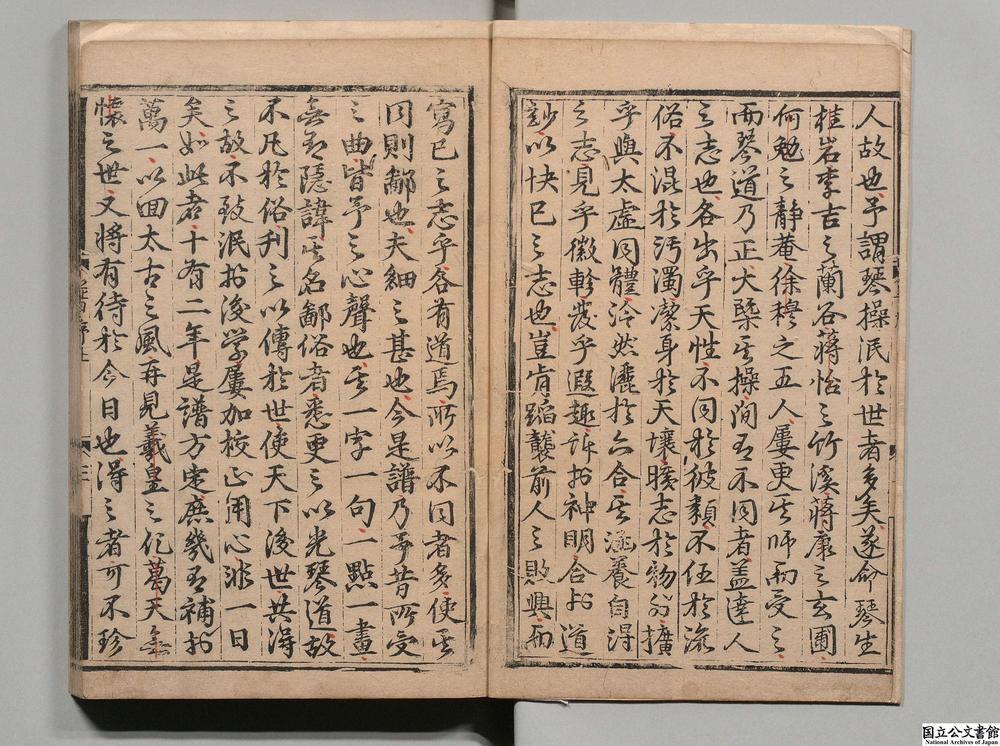 人故也予謂琴操泯於世者多矣遂命琴生
桂岩李吉之蘭谷蔣怡之竹溪蔣康之玄圃
何勉之靜菴徐穆之五人屢更其師而受之
而琴道乃正大槩其操間有不同者盖達人
之志也各出乎天性不同於彼類不伍於流
俗不混於汚濁潔身於天壤曠志於物外擴
乎與太虛同體泠然灑於六合其涵養自得
之志見乎徽軫發乎遐趣訴於神明合於道
玅以快已之志也豈肯蹈襲前人之敗興而
寫已之志乎各有道焉所以不同者多使其
同則鄙也夫細之甚也今是譜乃予昔所受
之曲皆予之心聲也其一字一句一點一畫
無有隱諱其名鄙俗者悉更之以光琴道故
不凡於俗刋之以傳於世使天下後世共得
之故不致泯於後學屢加校正用心非一日
矣如此者十有二年是譜方定庶幾有補於
萬一以回太古之風再見羲皇之化萬天無
懷之世又將有待於今日也得之者可不珍
國立公文書館
National Archives of Japan